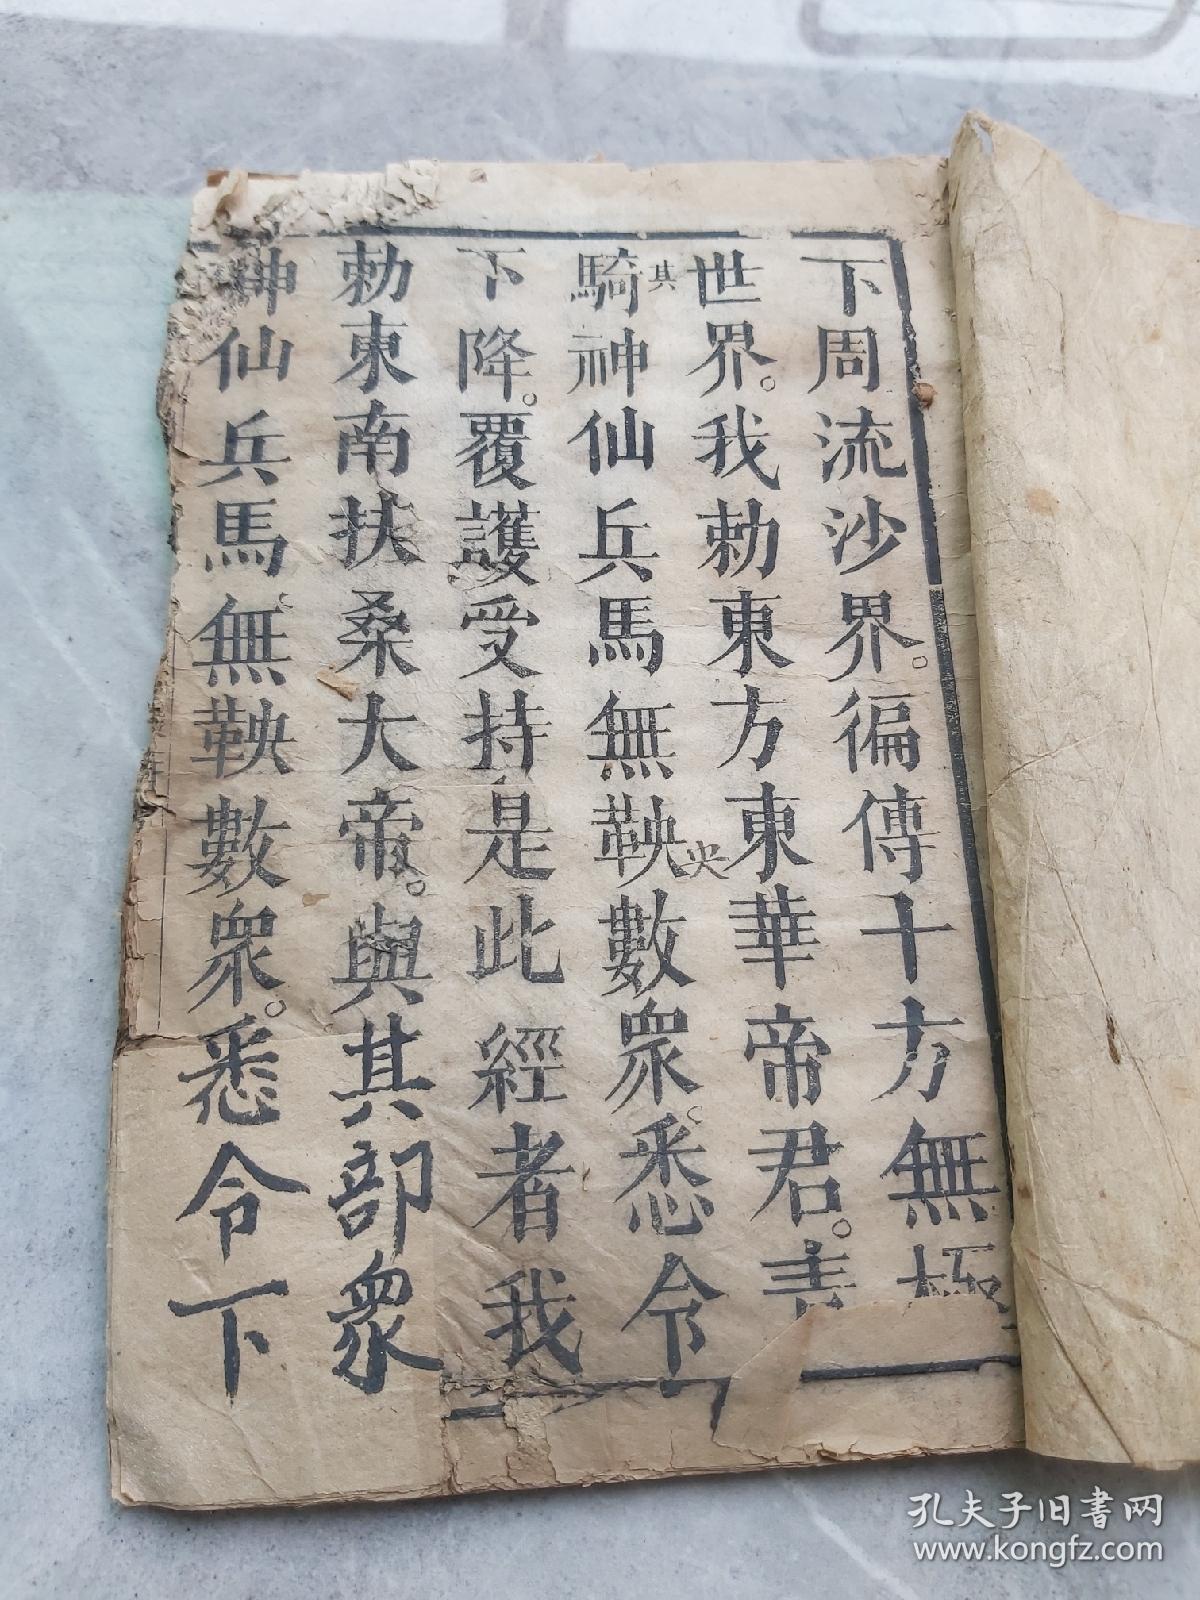 下周流沙界。徧傳十方無極
世界。我勅東方東華帝君。青
騎神仙兵馬無鞅數衆。悉令
其
央
下降。覆護受持是此經者我
勅東南扶桑大帝。與其部衆
神仙兵馬。無鞅數衆。悉令下
孔夫子旧书网
www.kongfz.com